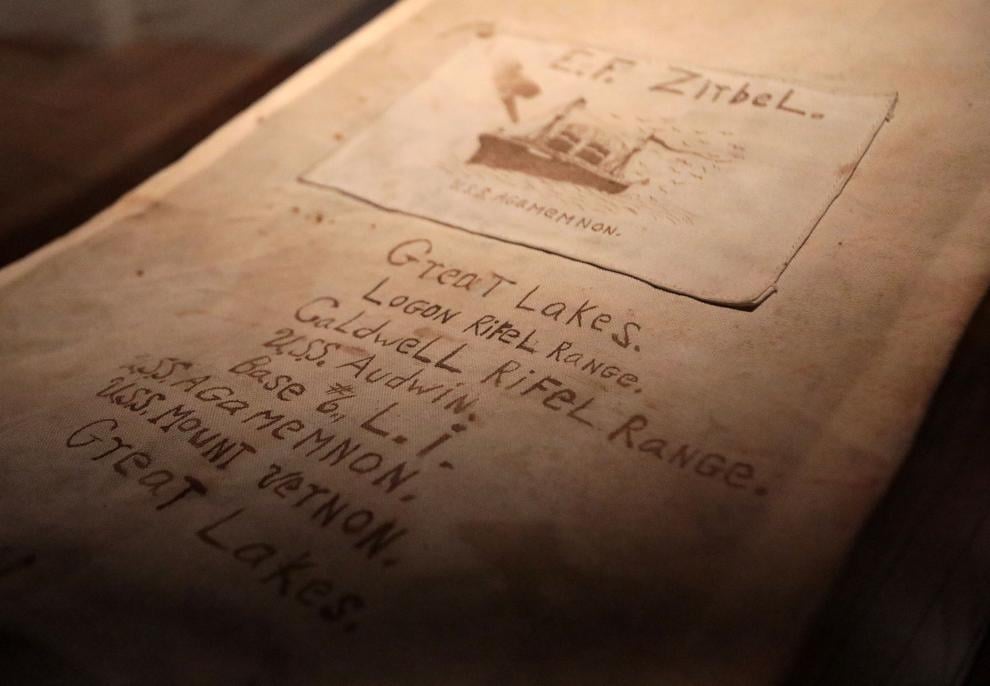 E.F. ZiTbeL.
U.S.S. AGAMEMNON.
GreaT Lakes.
LOGON RiFeL RANGe.
CaLdweLL RiFeL RaNGe.
U.S.S. Audwin.
Base #6,, L. i.
U.S.S. AGaMeMNON.
U.S.S. MOUNT VerNON.
GreaT Lakes.